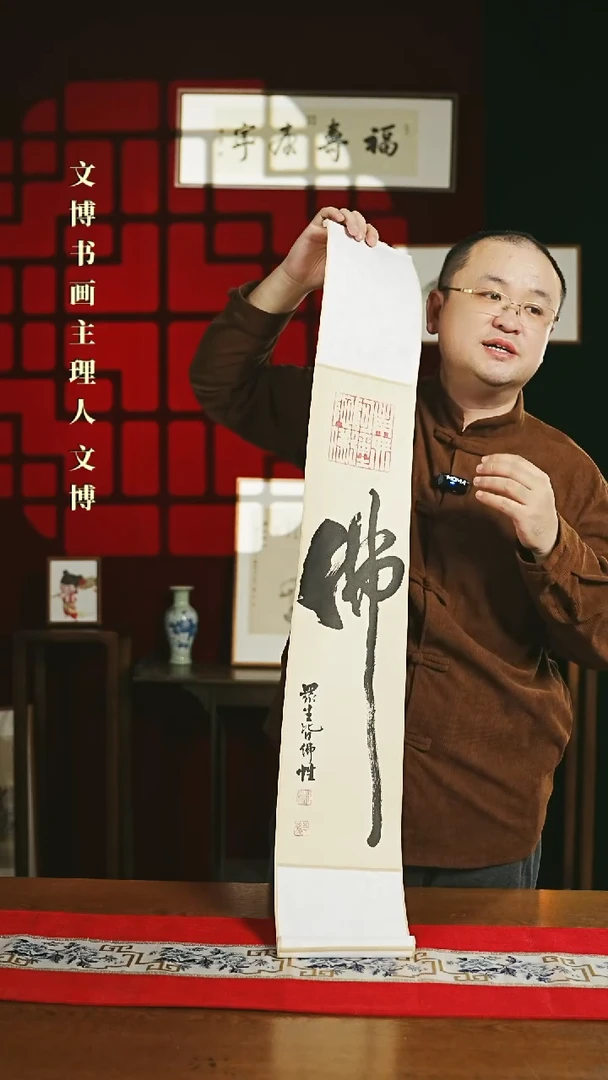 文博书画主理人文博
福寿康宁
佛
眾生皆佛性